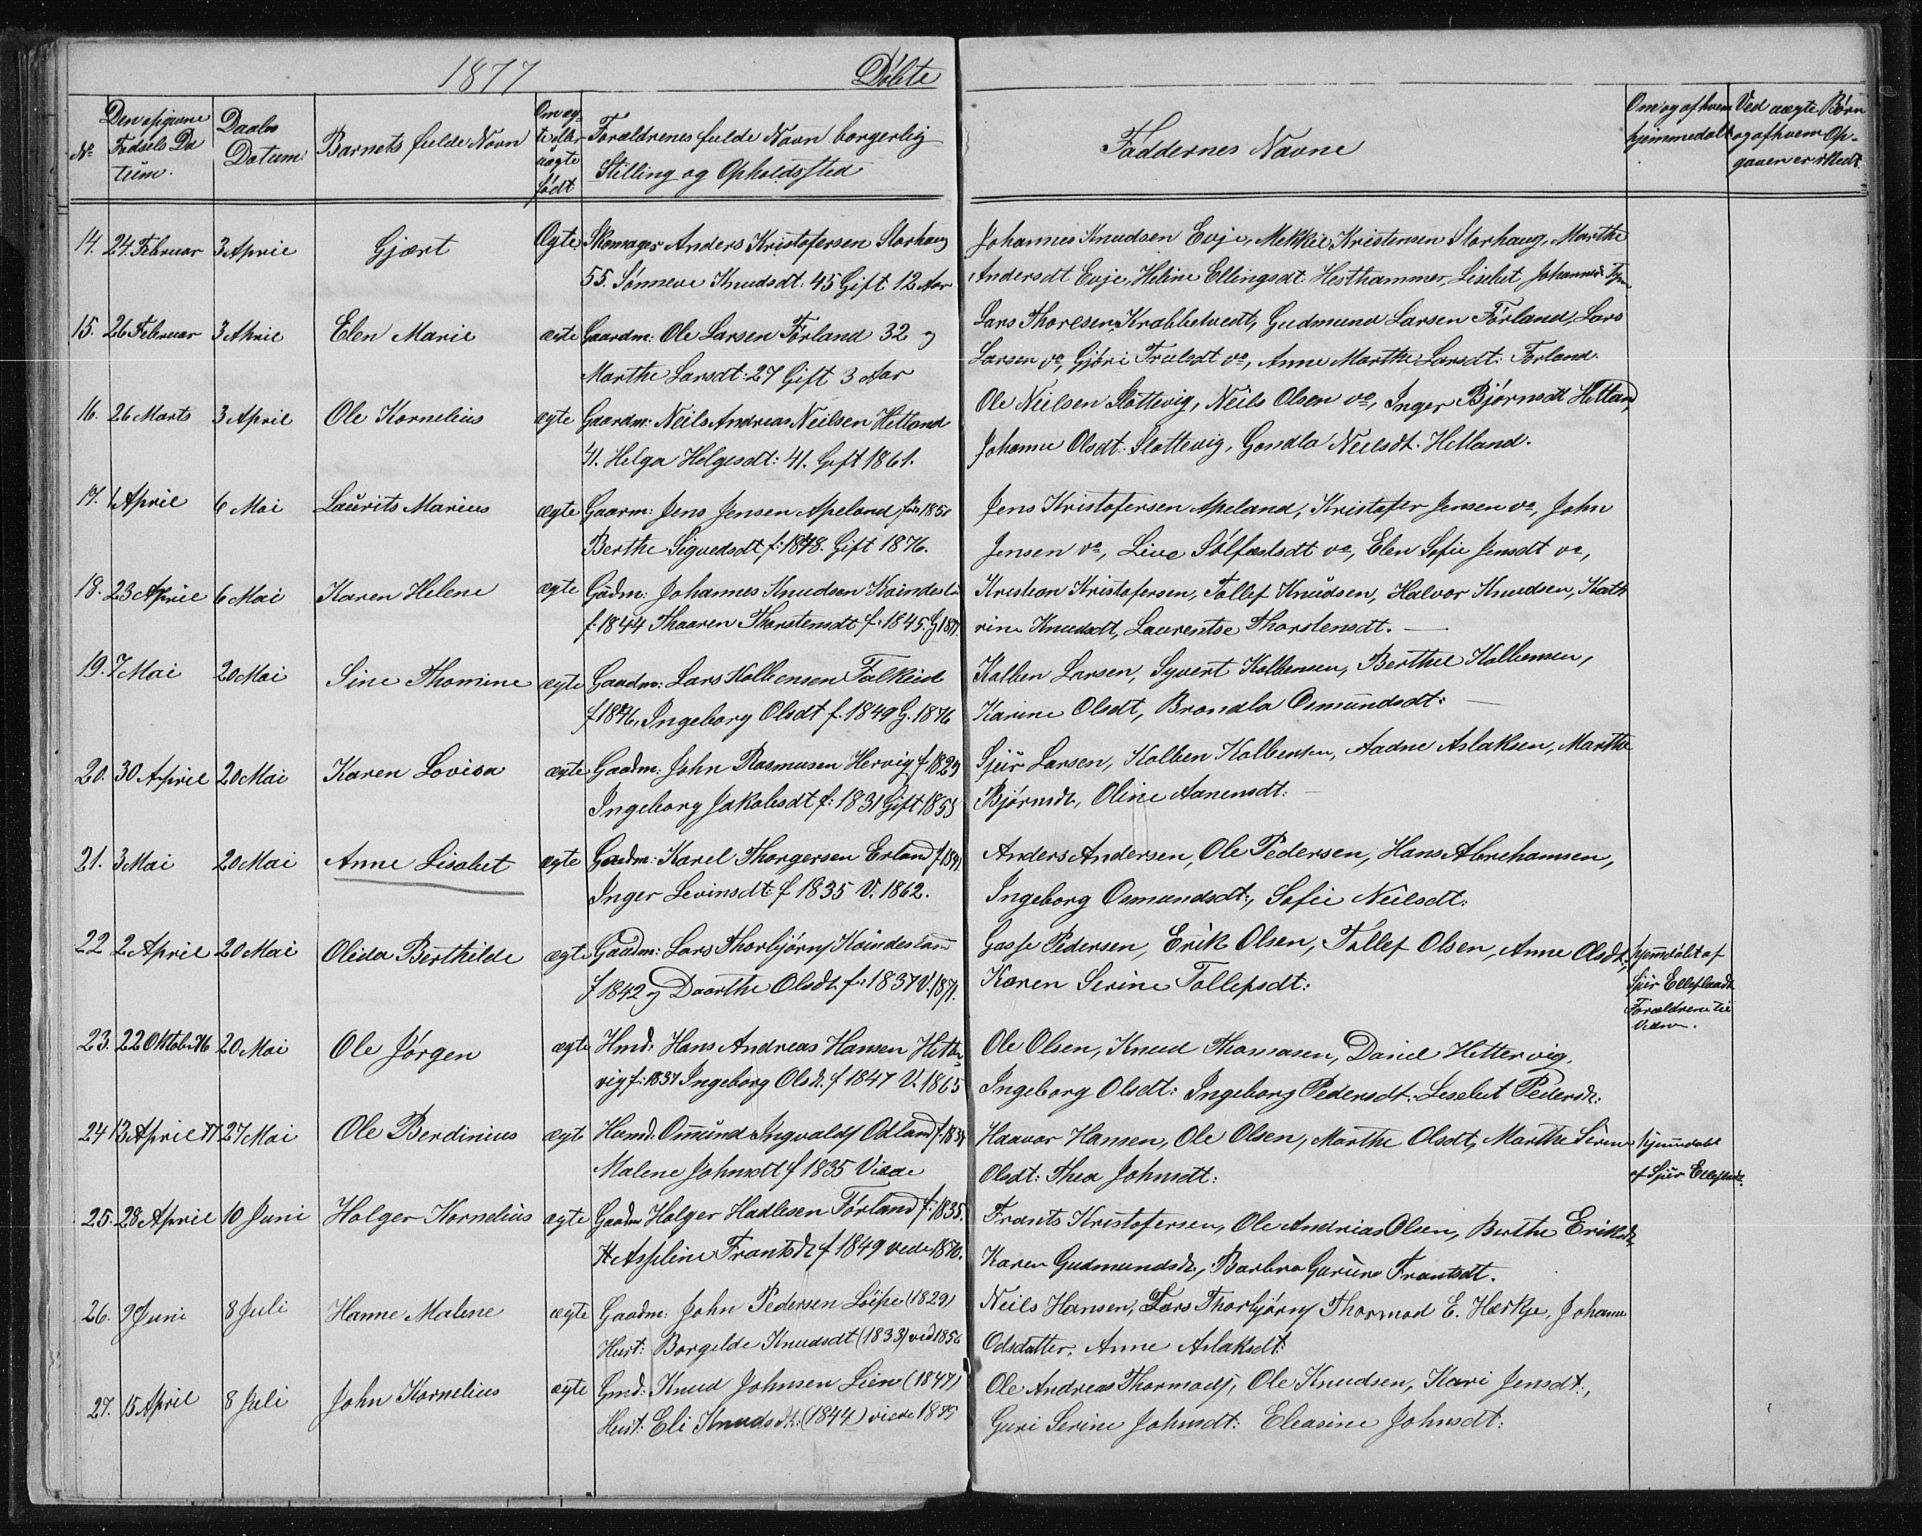 1877
Döbte
No
Den opgivne Fødsels Datum.
Daabs Datum:
Barnets fulde Navn
Om ægte eller uægte født
Forældrenes fulde Navn borgerlig Stilling og Opholdssted
Faddernes Navne
Om og af hvem hjemmedøbt
Ved uægte Børn og af hvem Opgaven er skedt
14. 24. Februar 3 April Gjært Ægte Skomager Anders Kristofersen Storhaug
55. Sønneve Knudsdt: 45 Gift 12 Aar
Johannes Knudsen Evje, Mekkel Kristensen Storhaug, Marthe
Andersdt Evje, Heline Ellingsdt: Hesthammer, Lisebet Johannes
15. 26 Februar 3 April Elen Marie ægte Gaardm: Ole Larsen Førland 32 og
Marthe Larsdt: 27 Gift 3 Aar
Lars Thoresen Krabbetvedt, Gudmund Larsen Førland, Lars
Larsen do, Gjøri Trulsdt do, Anne Marthe Larsdt: Førland.
16. 26 Marts 3 April Ole Kornelius ægte Gaardm: Neils Andreas Neilsen Hetland
41. Helga Helgesdt: 41. Gift 1861.
Ole Neilsen Slottevig, Neils Olsen do, Inger Bjørnsdt Hetland,
Johanne Olsdt: Slottevig, Gondla Neilsdt. Hetland.
17. 4 April 6 Mai Laurits Marius ægte Gaarm: Jens Jensen Apeland før 1850
Berthe Sigvedsdt f: 1848. Gift 1876.
Jens Kristofersen Apeland, Kristofer Jensen do, John
Jensen do, Live Sølfæstsdt do, Elen Sofie Jensdt do,
18. 23 April 6 Mai Karen Helene ægte Gadm: Johannes Knudsen
f. 1844 Thaaren Thorstensdt f. 1845. G 1871
Kristian Kristofersen, Tollef Knudsen, Halvor Knudsen, Kath
rine Knudsdt, Laurentse Thorstensdt. —
19. 7 Mai 20 Mai Sine Thomine ægte Gaadm: Lars Kolbensen Falkeid
f. 1846, Ingeborg Olsdt f. 1849 G. 1876
Kolben Larsen, Syvert Kolbensen, Berthe Kolbensen,
Karine Olsdt, Brondla Osmundsdt: —
20. 30 April 20 Mai Karen Lovisa ægte Gaadm: John Rasmusen Hervig f. 1829
Ingeborg Jakobsdt f: 1831 Gift 1855
Sjur Larsen, Kolben Kolbensen, Aadne Aslaksen, Marthe
Bjørnsdt, Oline Aanensdt: —
21. 3 Mai 20 Mai Anne Lisabet ægte Gaadm: Karel Thorgersen Erland
Inger Levinsdt f 1835 V. 1862.
Anders Andersen, Ole Pedersen, Hans Abrehamsen,
Ingeborg Osmundsdt:, Sofie Neilsdt:
22 2 April 20 Mai Olida Berthilde ægte Gaadm: Lars Thorbjørns
f 1842 og Daarthe Olsdt. f: 1837 V. 1871.
Gasse Pedersen, Erik Olsen, Tollef Olsen, Anne Olsdt:,
Karen Serine Tollefsdt:
hjemdöbt af
Sjur
Forældrene til
Vidne.
23. 22 Oktob 76 20 Mai Ole Jørgen ægte Hmd: Hans Andreas Hansen Hetter
vig f: 1837 Ingeborg Olsd. f 1847 V. 1865
Ole Olsen, Knud Thomasen, Daniel Hettervig,
Ingeborg Olsdt: Ingeborg Pedersdt: Lesebet Pedersdt:
24 13 April 77 27 Mai Ole Berdinius ægt Hamd: Omund Ingvalds Odland
Malene Johnsdt f 1835 Viede
Haavar Hansen, Ole Olsen, Marthe Olsdt, Marthe Serine
Olsdt: Thea Johnsdt:
hjemdøbt
af Sjur
25. 28 April 10 Juni Holger Kornelius ægte Gaadm Holger Hadlesen Førland f: 1835.
H Asseline Frantsdt f 1849 vede 1870.
Frants Kristofersen, Ole Andrias Olsen, Berthe Eriksdt,
Karen Gudmundsdt., Barbro Gurine Frantsdt.
26. 9 Juni 8 Juli Hanne Malene ægte Gaadm: John Pedersen (1829)
Hust: Borgelde Knudsdt (1833) vied 1856
Neils Hansen, Lars Thorbjørns Thormod E. Hærkje, Johanne
Odsdatter, Anne Aslaksdt:
27. 15 April 8 Juli John Kornelius ægte Gmd: Knud Johnsen Lien (1847)
Hust: Eli Knudsdt. (1844) viede 1875
Ole Andreas Thormods, Ole Knudsen, Kari Jensdt:,
Guri Serine Johnsdt: Eleasine Johnsdt: